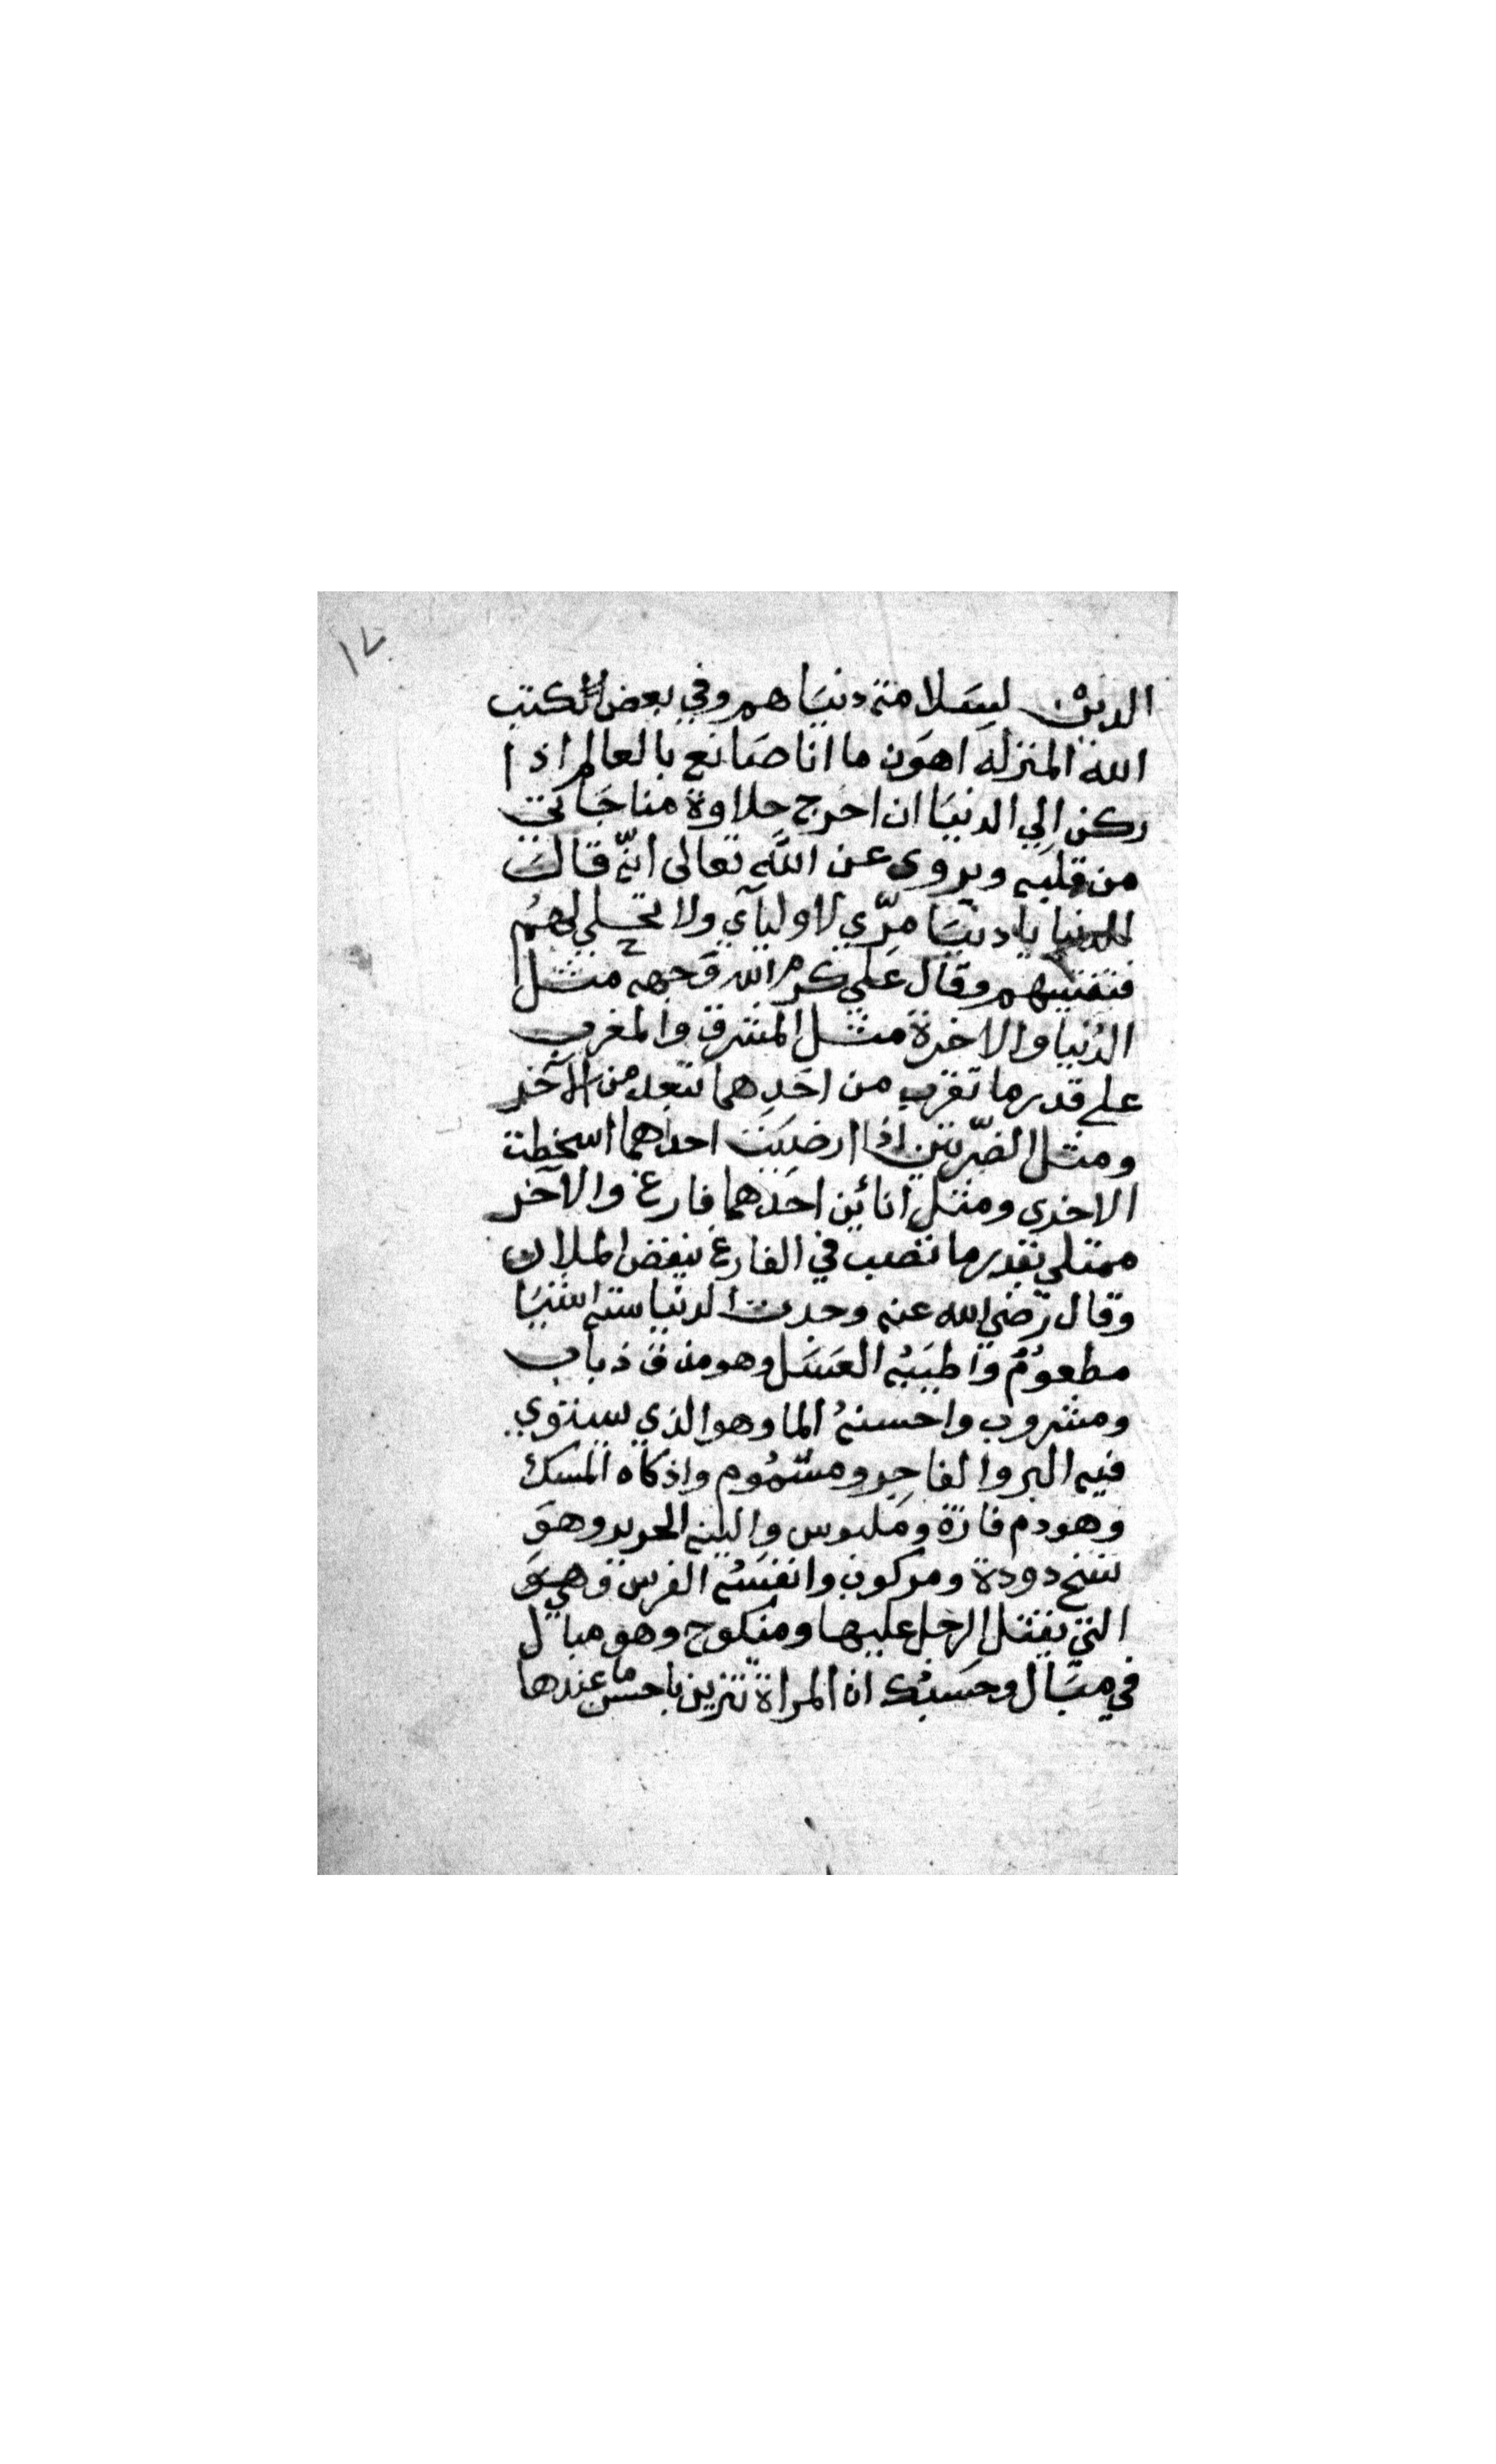 ١٧
الدين لسَلامة دنيَاهم وفي بعض الكتب
الله المنزله اهوَن ما انا صَانع بالعالم اذا
ركن الي الدنيَا ان اخرج حلاوة مناجَاتي
من قلبه ويروى عن اللَّه تعالى انّه قالَ
للدنيا يا دنيَا مرّي لاوليآي ولا تحلي لهمُ
فتفتنيهم وقال عَلي كرم الله وَجهه مثل
الدُنيا والاخرة مثل المشرق والمغرب
على قدر ما تقرب من احَدِهما تبعد من الآخر
ومثل الضرّتين اذا ارضيَت احداهما اسخطت
الاخرى ومثل انائين احَدهما فارغ والآخر
ممتلي بقدر ما تصب في الفارغ ينقص الملان
وقال رَضي الله عنه وجدت الدنيا ستة اشيَا
مطعومٌ واطيَبُه العَسَل وهو مذق ذباب
ومشروب واحسنهُ الما وهو الذي يستوي
فيه البر والفاجِر ومشمُوم واذكاه المسك
وهو دم فارة ومَلبوس والينه الحرير وهوَ
نسج دودة ومركوب وانفسَهُ الفرس وَهي
التي يقتل الرجل عليها ومنكوح وهو مبال
في مبَال وحَسبُك ان المراة تتزين باحسن ما عندها